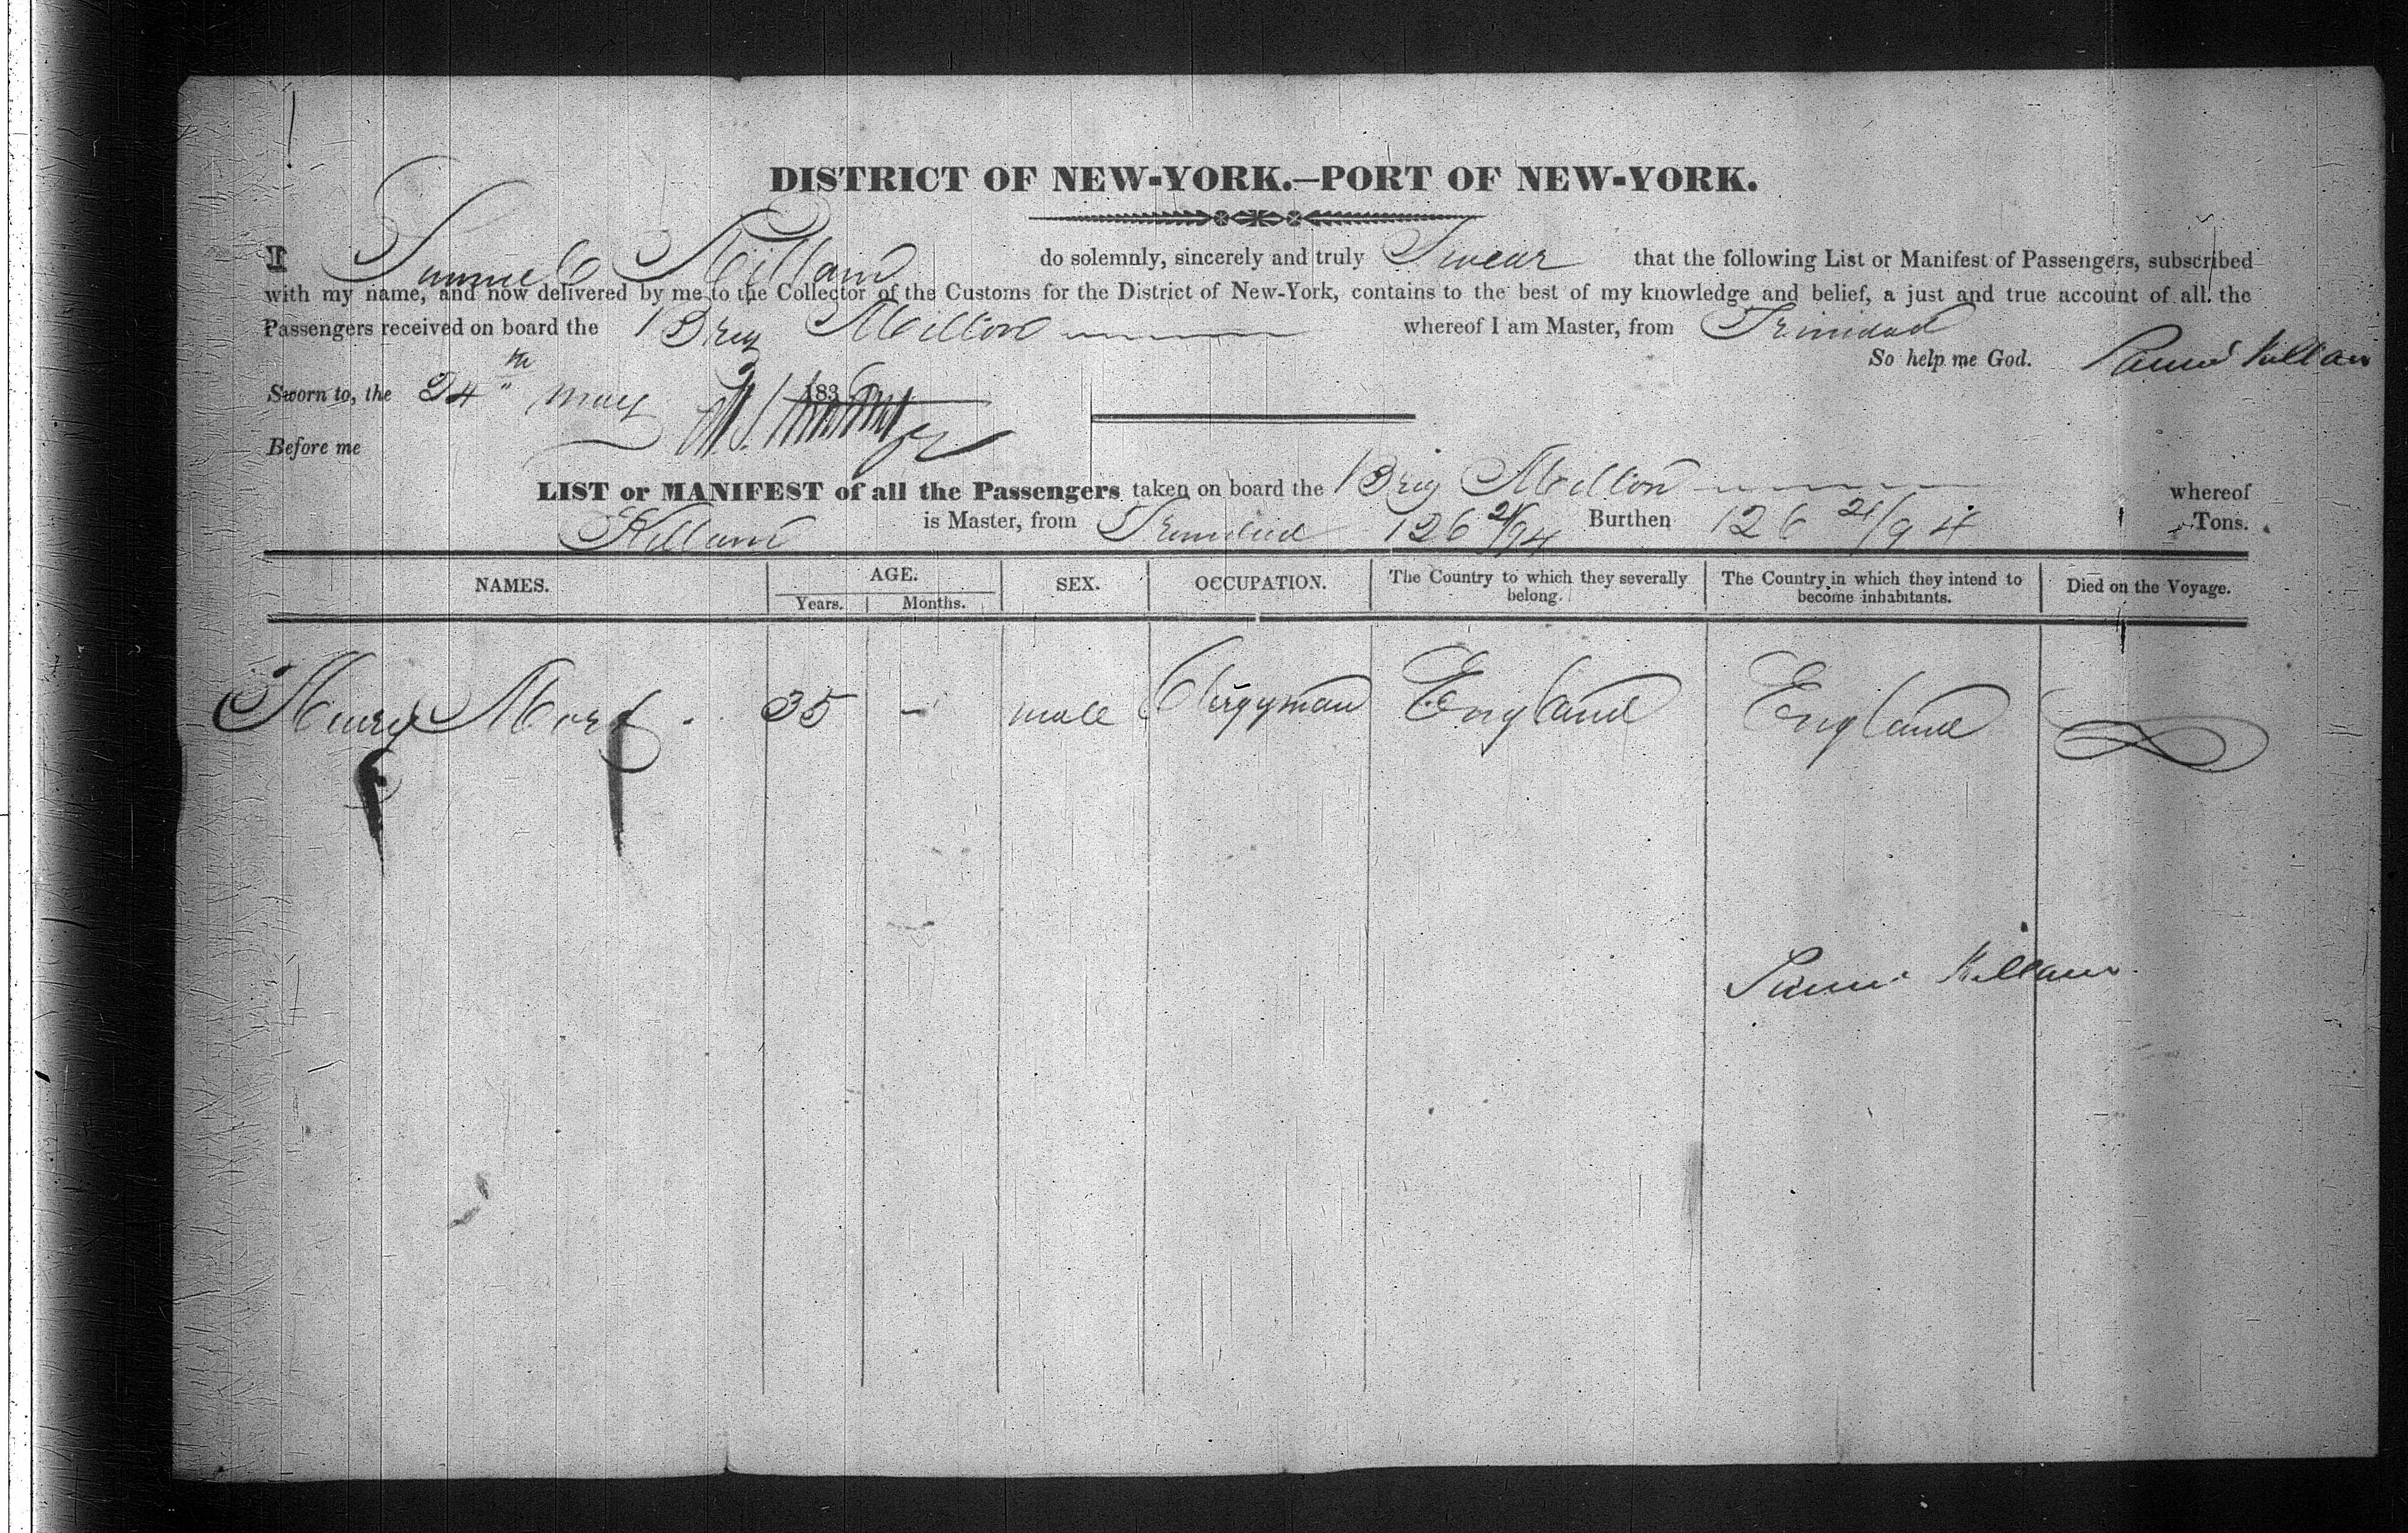 DISTRICT OF NEW-YORK.—PORT OF NEW-YORK.
I Samuel Killam do solemnly, sincerely and truly Swear that the following List or Manifest of Passengers, subscribed
with my name, and now delivered by me to the Collector of the Customs for the District of New-York, contains to the best of my knowledge and belief, a just and true account of all the
Passengers received on board the Brig Milton whereof I am Master, from Trinidad
So help me God. Saml Killam
Sworn to, the 24th May 183
Before me
LIST or MANIFEST of all the Passengers taken on board the Brig Milton whereof
Killam is Master, from Trinidad 126 21/94 Burthen 126 21/94 Tons.
NAMES. AGE. SEX. OCCUPATION. The Country to which they severally belong. The Country in which they intend to become inhabitants. Died on the Voyage.
Years. Months.
Henry 35 - male Clergyman England England
Saml Killam